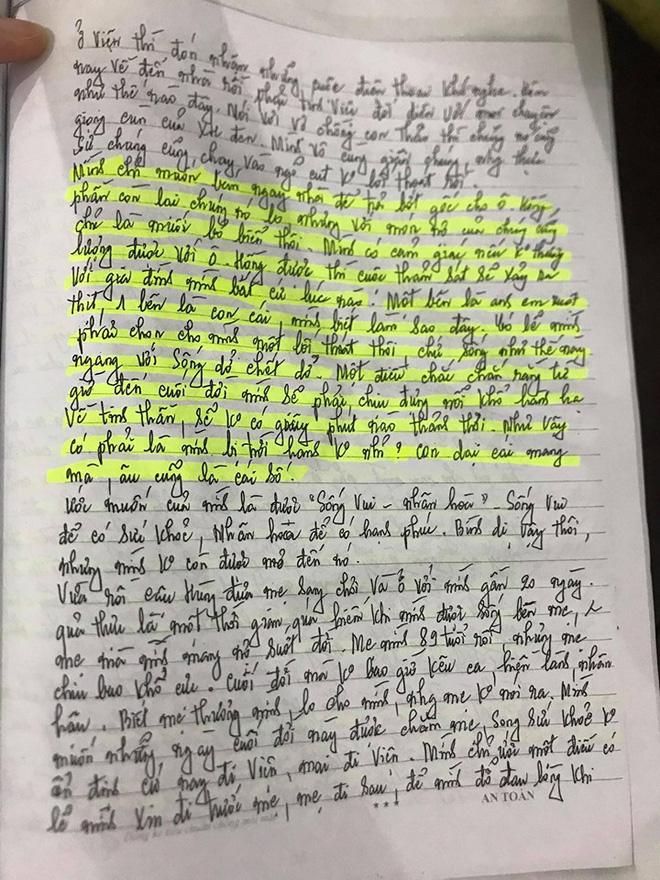 ở viện thì đón nhận những cuộc điện thoại khó nghe. Hôm
nay về đến nhà rồi phải trực tiếp đối diện với mọi chuyện
như thế nào đây. Nói với vợ chồng con Thảo thì chúng nó cũng
giọng cùn của XH đen. Mình vô cùng giận chúng, nhg thực
sự chúng cũng chạy vào ngõ cụt K lối thoát rồi.
Mình chỉ muốn bán ngay nhà để trả bớt gốc cho ô. Hồng
phần còn lại chúng nó lo nhưng với món nợ của chúng cũng
chỉ là muối bỏ biển thôi. Mình có cảm giác nếu K thương
lượng được với ô. Hồng được thì cuộc thảm sát sẽ xảy ra
với gia đình mình bất cứ lúc nào. Một bên là anh em ruột
thịt, 1 bên là con cái, mình biết làm sao đây. Có lẽ mình
phải chọn cho mình một lối thoát thôi, chứ sống như thế này
ngang với sống dở chết dở. Một điều chắc chắn rằng từ
giờ đến cuối đời mình sẽ phải chịu đựng nỗi khổ
về tinh thần, sẽ K có giây phút nào thảnh thơi. Như vậy
có phải là mình bị trời hành K nhỉ? con dại cái mang
mà, âu cũng là cái số.
Ước muốn của mình là được "Sống vui - nhân hòa" - Sống vui
để có sức khoẻ, Nhân hoà để có hạnh phúc. Bình dị vậy thôi,
nhưng mình K còn được mơ đến nó.
Vừa rồi cậu Hùng đưa mẹ sang chơi và ở với mình gần 20 ngày.
quả thực là một thời gian quá hiếm khi mình được sống bên mẹ,
mẹ mà mình mang nợ suốt đời. Mẹ mình 89 tuổi rồi, nhưng mẹ
chịu bao khổ cực. Cuối đời mà K bao giờ kêu ca, hiền lành nhân
hậu. Biết mẹ thương mình, lo cho mình, nhg mẹ K nói ra. Mình
muốn những ngày cuối đời này được chăm mẹ, song sức khoẻ K
ổn định cứ nay đi viện, mai đi viện. Mình chỉ ước một điều có
lẽ mình xin đi trước mẹ, mẹ đi sau, để mình đỡ đau lòng khi
***
AN TOÀN